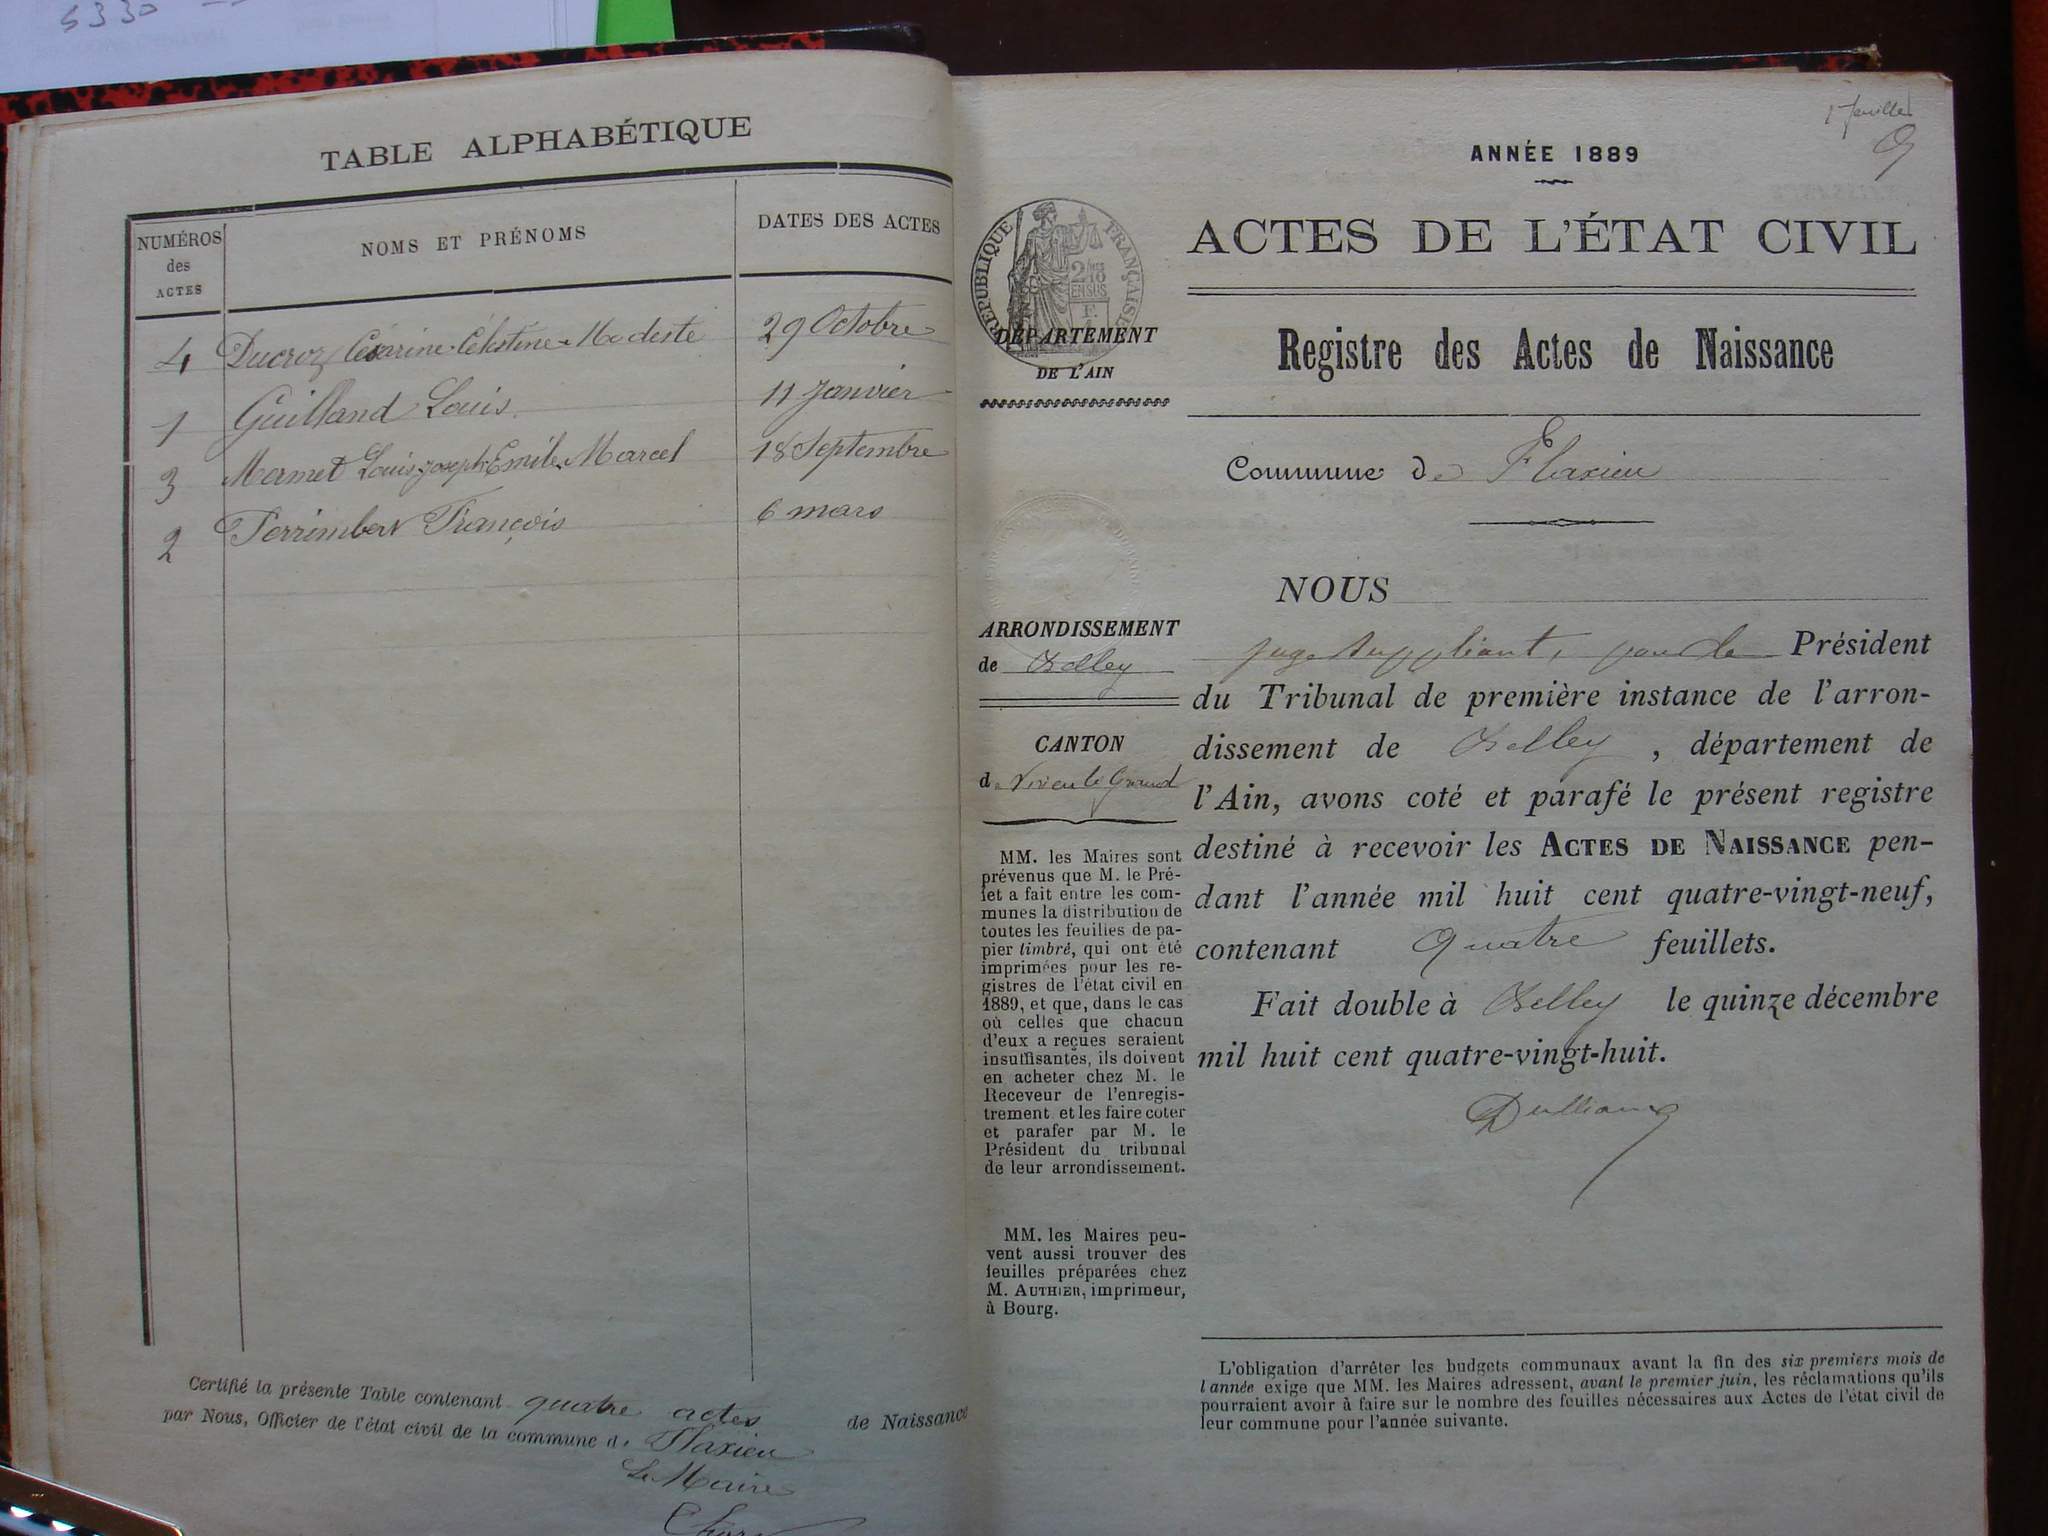 5330
TABLE ALPHABÉTIQUE
NUMÉROS
des
ACTES
NOMS ET PRÉNOMS
DATES DES ACTES
4 Ducroz Célestine Modeste 29 Octobre
1 Guilland Louis 11 Janvier
3 Mermet Louis Joseph Emile Marcel 18 Septembre
2 Perrimbert François 6 mars
Certifié la présente Table contenant quatre actes de Naissance
par Nous, Officier de l'état civil de la commune de Flaxieu
Le Maire
1er feuillet
ANNÉE 1889
ACTES DE L'ÉTAT CIVIL
RÉPUBLIQUE FRANÇAISE
2/10
EN SUS
DÉPARTEMENT
DE L'AIN
Registre des Actes de Naissance
Commune de Flaxieu
NOUS
ARRONDISSEMENT
de Belley
CANTON
de Virieu le Grand
MM. les Maires sont
prévenus que M. le Pré-
fet a fait entre les com-
munes la distribution de
toutes les feuilles de pa-
pier timbré, qui ont été
imprimées pour les re-
gistres de l'état civil en
1889, et que, dans le cas
où celles que chacun
d'eux a reçues seraient
insuffisantes, ils doivent
en acheter chez M. le
Receveur de l'enregis-
trement et les faire coter
et parafer par M. le
Président du tribunal
de leur arrondissement.
MM. les Maires peu-
vent aussi trouver des
feuilles préparées chez
M. AUTHIER, imprimeur,
à Bourg.
juge suppléant, pour le Président
du Tribunal de première instance de l'arron-
dissement de Belley, département de
l'Ain, avons coté et parafé le présent registre
destiné à recevoir les ACTES DE NAISSANCE pen-
dant l'année mil huit cent quatre-vingt-neuf,
contenant quatre feuillets.
Fait double à Belley le quinze décembre
mil huit cent quatre-vingt-huit.
L'obligation d'arrêter les budgets communaux avant la fin des six premiers mois de
l'année exige que MM. les Maires adressent, avant le premier juin, les réclamations qu'ils
pourraient avoir à faire sur le nombre des feuilles nécessaires aux Actes de l'état civil de
leur commune pour l'année suivante.